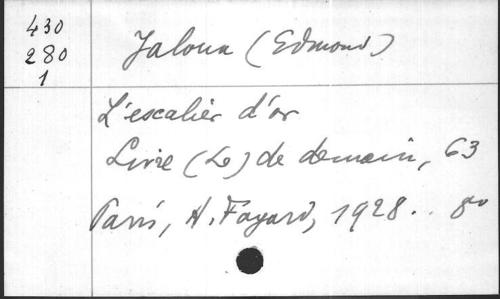 430
280
1
Jaloux (Edmond)
L'escalier d'or
Livre (Le) de demain, 63
Paris, A. Fayard, 1928.. 8º